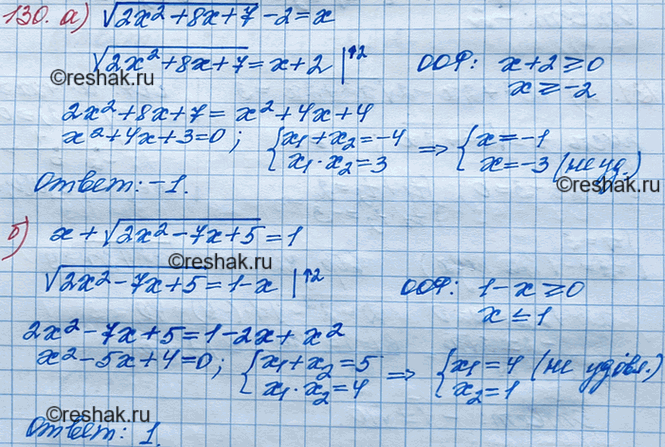 130. а) √(2x²+8x+7) -2=x
√(2x²+8x+7) = x+2 |↑2 ООФ: x+2≥0
x≥-2
©reshak.ru
2x²+8x+7= x²+4x+4
x²+4x+3=0; {x₁+x₂=-4 x₁·x₂=3 => {x=-1 x=-3 (не уд.)
©reshak.ru
Ответ: -1.
б) x+√(2x²-7x+5)=1
©reshak.ru
√(2x²-7x+5)=1-x |↑2 ООФ: 1-x≥0
x≤1
2x²-7x+5=1-2x+x²
x²-5x+4=0; {x₁+x₂=5 x₁·x₂=4 => {x₁=4 (не удовл.) x₂=1
©reshak.ru
Ответ: 1.